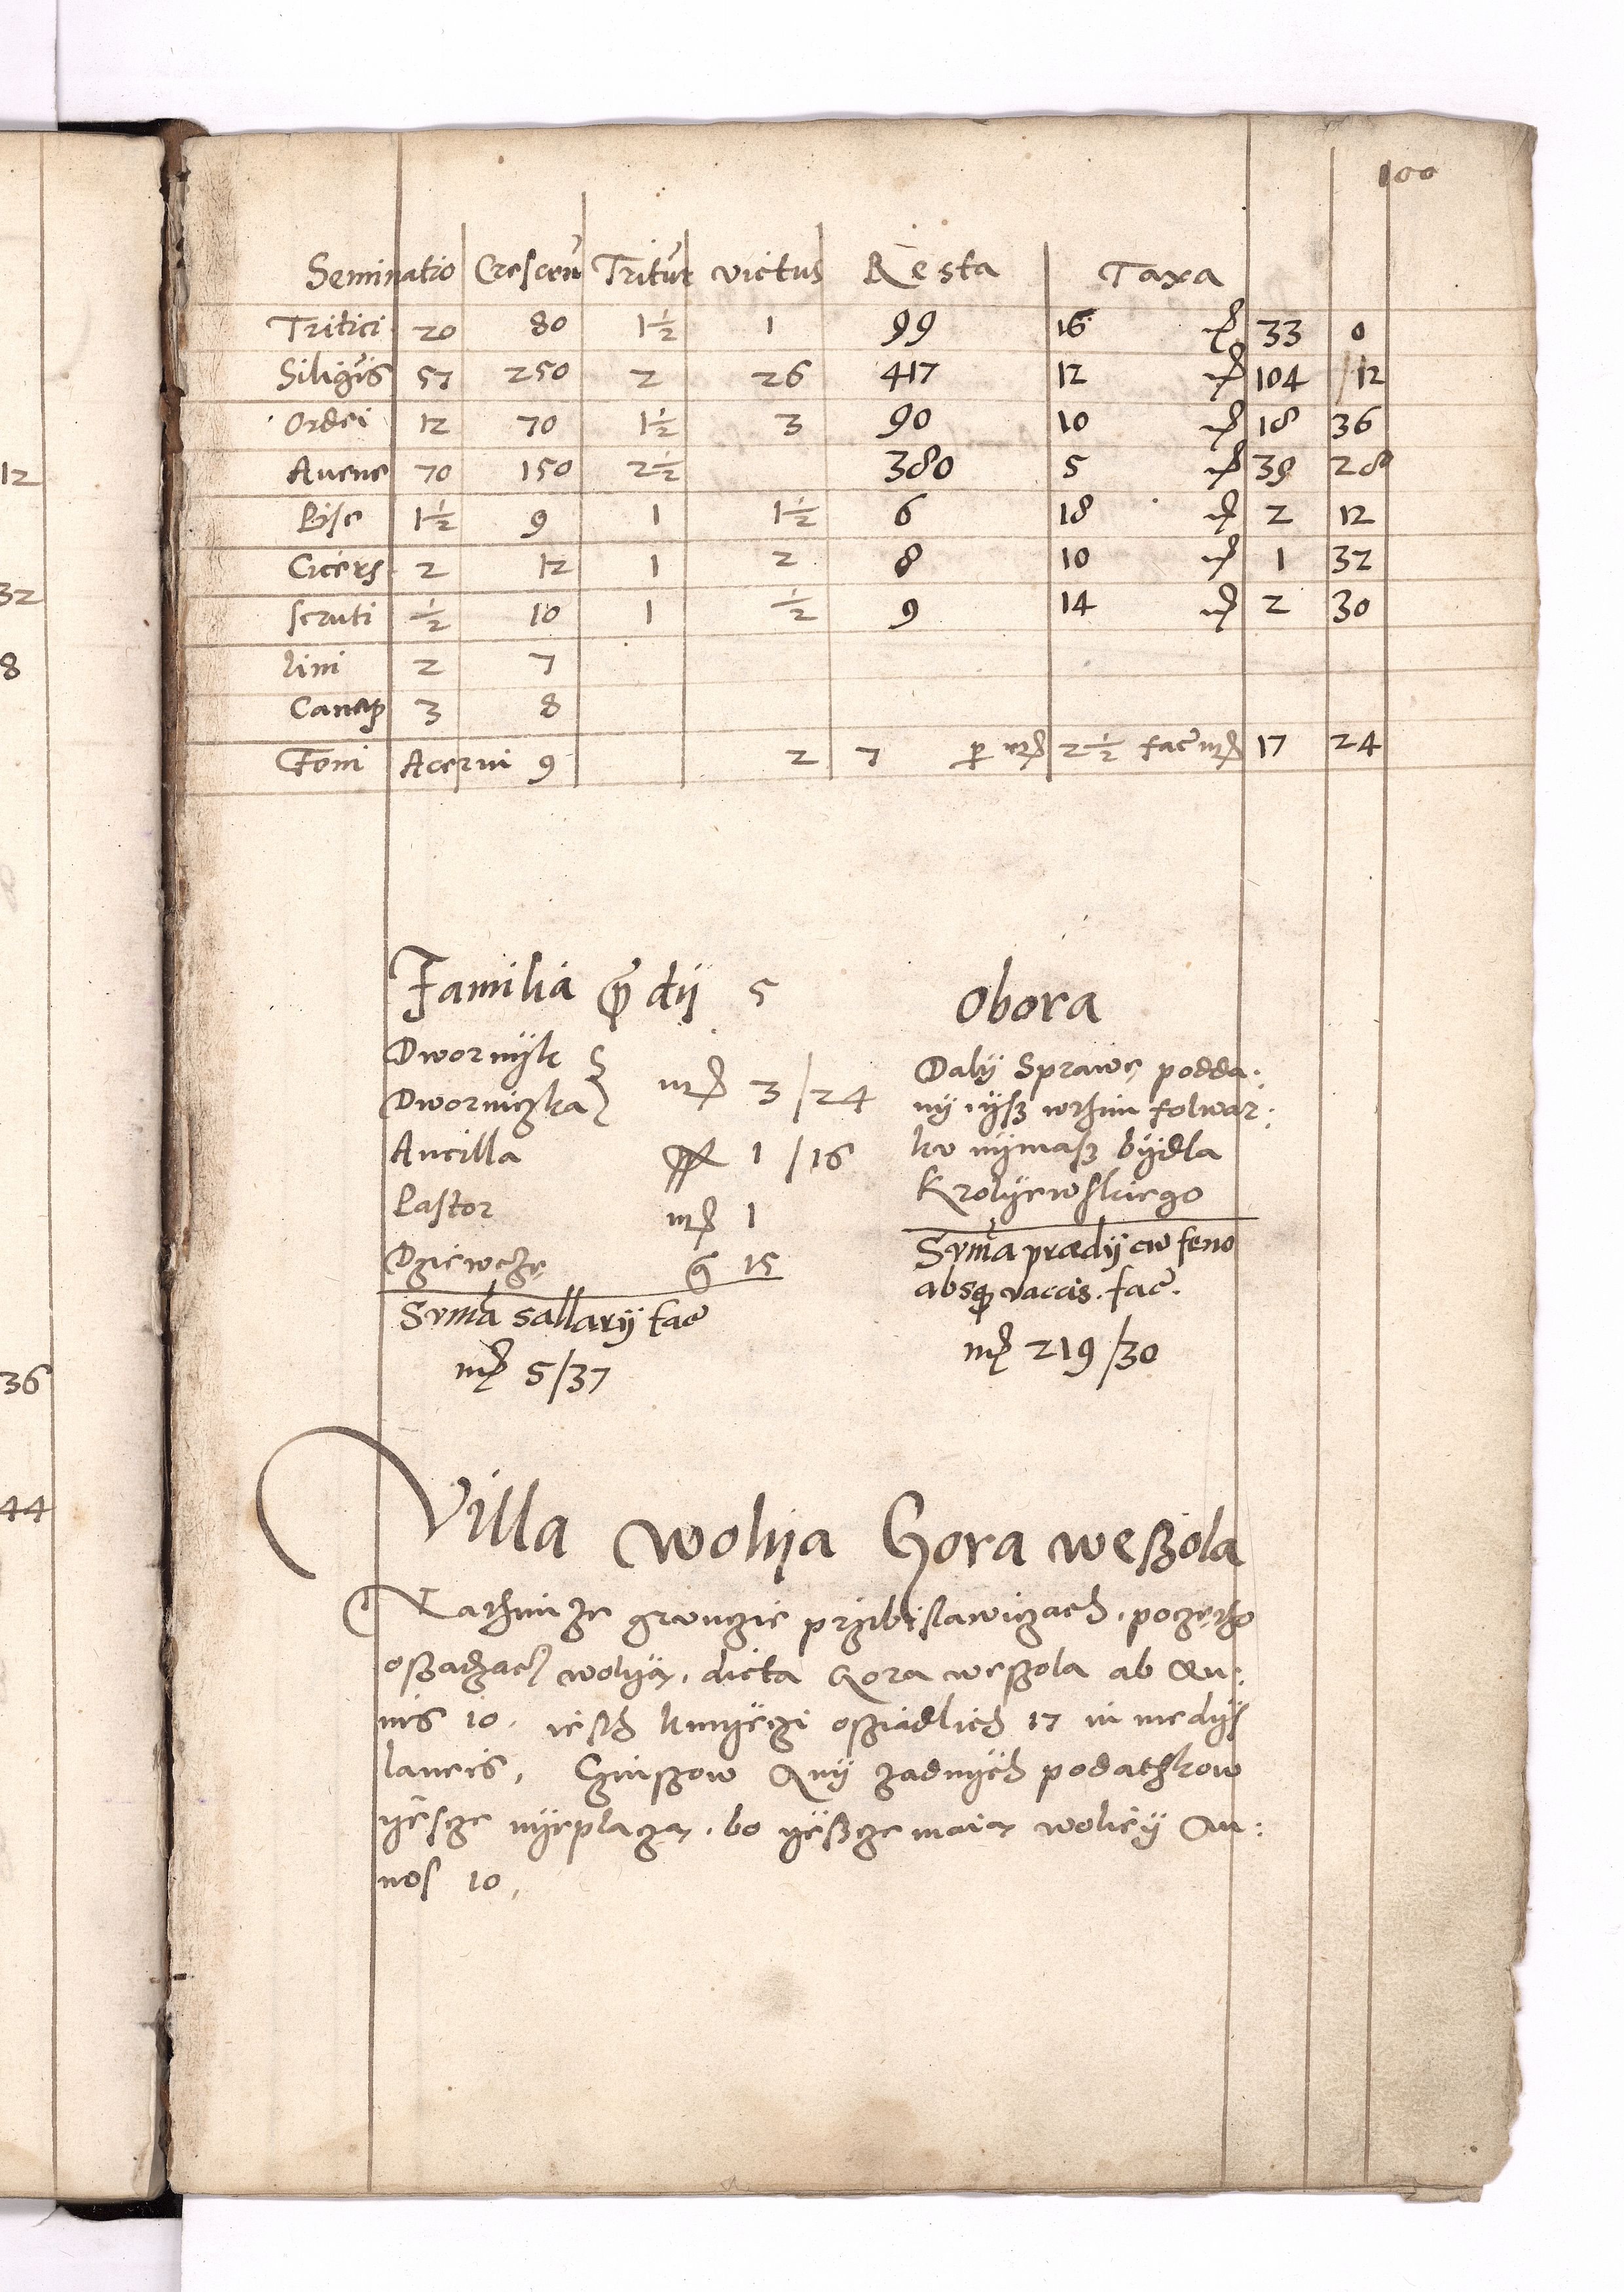 100
Seminatio Crescen̄ Tritur victus Resta Taxa
Tritici 20 80 1½ 1 99 16 mṛ 33 0
Siliginis 57 250 2 26 417 12 mṛ 104 /12
Ordei 12 70 1½ 3 90 10 mṛ 18 36
Auene 70 150 2½ 380 5 mṛ 39 28
Pise 1½ 9 1 1½ 6 18 mṛ 2 12
Cicers 2 12 1 2 8 10 mṛ 1 32
scruti ½ 10 1 ½ 9 14 mṛ 2 30
lini 2 7
Canap 3 8
Foni Acerui 9 2 7 ꝑ mṛ 2½ fac̄ mṛ 17 24
12
32
8
36
44
Familia p̄dij 5
Dwornÿk
Dworniczka mṛ 3/24
Ancilla 1/16
Pastor mṛ 1
Dziewcżę g 15
Sum̄a sallarij fac̄
mṛ 5/37
Obora
Dalÿ Sprawę podda:
nÿ ÿsz wthim folwar:
ku nÿmasz bÿdla
Krolÿewskiego
Sum̄a prædij cū feno
absqꝫ vaccis. fac̄.
mṛ 219/30
Villa wolija Gora weßola
Nathimże gruncżie przibislawiczach, poczętho
oßadzacz wolÿą, dicta Gora weszola ab An:
nis 10. iesth kmÿeczi osziadlich 17 in medijs
laneis, Czinszow Anÿ żadnÿch podathkow
ÿescze nÿeplaczą, bo ÿeßcze maią woliey An:
nos 10,